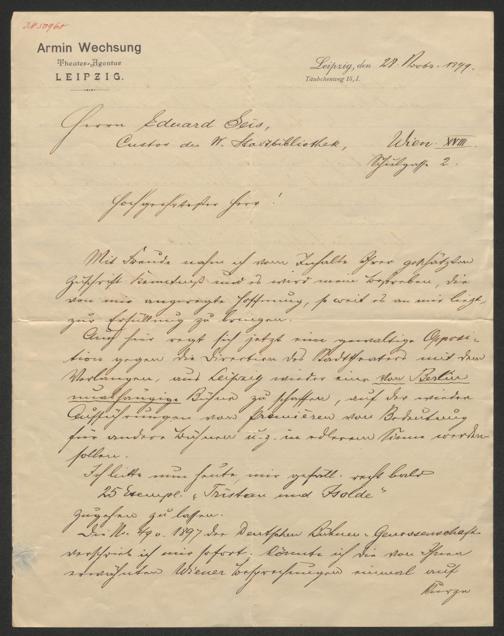 Armin Wechsung
Theater-Agentur
LEIPZIG.
Leipzig, den 28. Novbr. 1899.
Täubchenweg 15, I.
Herrn Eduard Seis,
Custos der W. Stadtbibliothek,
Wien XVIII.
Schulgasse 2.
Hochgeehrtester Herr!
Mit Freude nahm ich vom Inhalte Ihrer geschätzten
Zuschrift Kenntniß und es wird mein Bestreben, die
von mir angeregte Hoffnung, so weit es an mir liegt,
zur Erfüllung zu bringen.
Auch hier regt sich jetzt eine gewaltige Opposi-
tion gegen die Direction des Stadttheaters mit dem
Verlangen, aus Leipzig wieder eine von Berlin
unabhängige Bühne zu schaffen, auf der wieder
Aufführungen von Premièren von Bedeutung
für andere Bühnen u.z. im edleren Sinne werden
sollen.
Ich bitte nun heute, mir gefäll. recht bald
25 Exempl. „Tristan und Isolde"
zugehen zu lassen.
Die N. 490. 1897 der Deutschen Bühnen-Genossenschaft
verschrieb ich mir sofort. Könnte ich die von Ihnen
erwähnten Wiener Besprechungen einmal auf
Kurze